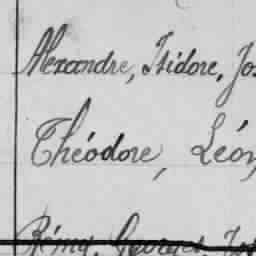 Alexandre, Isidore, Jos
Théodore, Léon,
Rémy, Georges, Jos